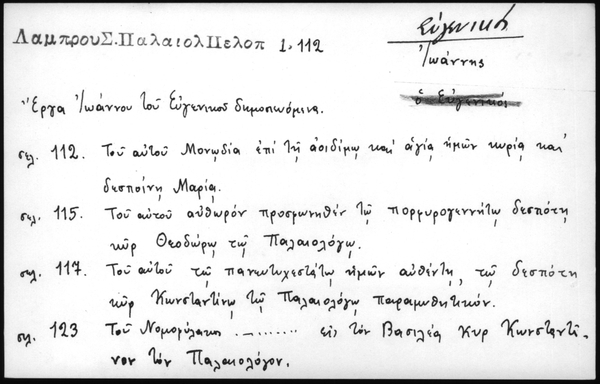 Εὐγενικός
ΛαμπρουΣ.ΠαλαιολΠελοπ 1.112
Ἰωάννης
ὁ Εὐγενικός
Ἔργα Ἰωάννου τοῦ Εὐγενικοῦ δημοσιευόμενα.
σελ. 112. Τοῦ αὐτοῦ Μονῳδία ἐπὶ τῇ ἀοιδίμῳ καὶ ἁγίᾳ ἡμῶν κυρίᾳ καὶ
δεσποίνῃ Μαρίᾳ.
σελ. 115. Τοῦ αὐτοῦ αὐθωρόν προσφωνηθέν τῷ πορφυρογεννήτῳ δεσπότῃ
κῦρ Θεοδώρῳ τῷ Παλαιολόγῳ.
σελ. 117. Τοῦ αὐτοῦ τῷ πανευτυχεστάτῳ ἡμῶν αὐθέντῃ, τῷ δεσπότῃ
κῦρ Κωνσταντίνῳ τῷ Παλαιολόγῳ παραμυθητικόν.
σελ. 123 Τοῦ Νομοφύλακος .......... εἰς τόν Βασιλέα Κυρ Κωνσταντῖ-
νον τόν Παλαιολόγον.